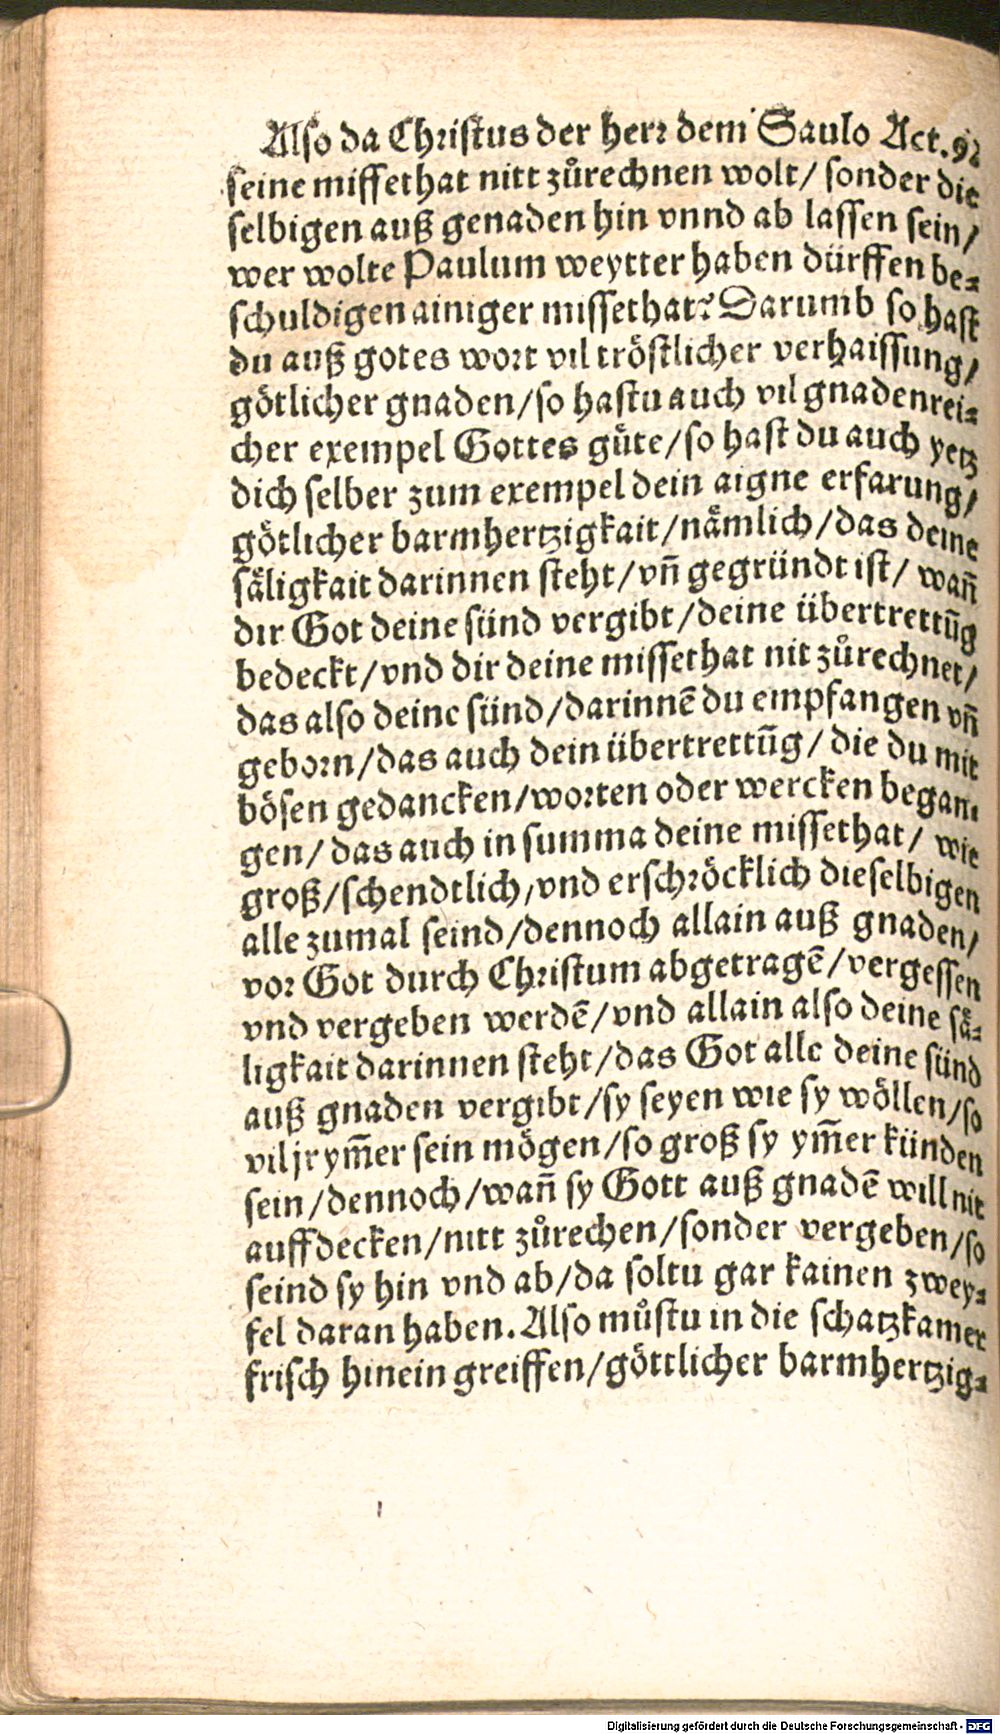 Also da Christus der herr dem Saulo Act. 9.
seine missethat nitt zůrechnen wolt/ sonder die
selbigen auß genaden hin vnnd ab lassen sein/
wer wolte Paulum weytter haben dürffen be⸗
schuldigen ainiger missethat? Darumb so hast
du auß gotes wort vil tröstlicher verhaissung/
götlicher gnaden/ so hastu auch vil gnadenrei⸗
cher exempel Gottes güte/ so hast du auch yetz
dich selber zum exempel dein aigne erfarung/
götlicher barmhertzigkait/ nämlich/ das deine
säligkait darinnen steht/ vñ gegründt ist/ wañ
dir Got deine sünd vergibt/ deine übertrettũg
bedeckt/ vnd dir deine missethat nit zůrechnet/
das also deine sünd/ darinnẽ du empfangen vñ
geborn/ das auch dein übertrettũg/ die du mit
bösen gedancken/ worten oder wercken began⸗
gen/ das auch in summa deine missethat/ wie
groß/ schendtlich/ vnd erschröcklich dieselbigen
alle zumal seind/ dennoch allain auß gnaden/
vor Got durch Christum abgetragẽ/ vergessen
vnd vergeben werdẽ/ vnd allain also deine sä⸗
ligkait darinnen steht/ das Got alle deine sünd
auß gnaden vergibt/ sy seyen wie sy wöllen/ so
vil jr ym̃er sein mögen/ so groß sy ym̃er künden
sein/ dennoch/ wañ sy Gott auß gnadẽ will nit
auffdecken/ nitt zůrechen/ sonder vergeben/ so
seind sy hin vnd ab/ da soltu gar kainen zwey⸗
fel daran haben. Also můstu in die schatzkamer
frisch hinein greiffen/ göttlicher barmhertzig⸗
Digitalisierung gefördert durch die Deutsche Forschungsgemeinschaft - DFG